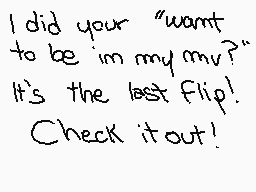 I did your "want
to be in my mv?"
It's the last flip!
Check it out!